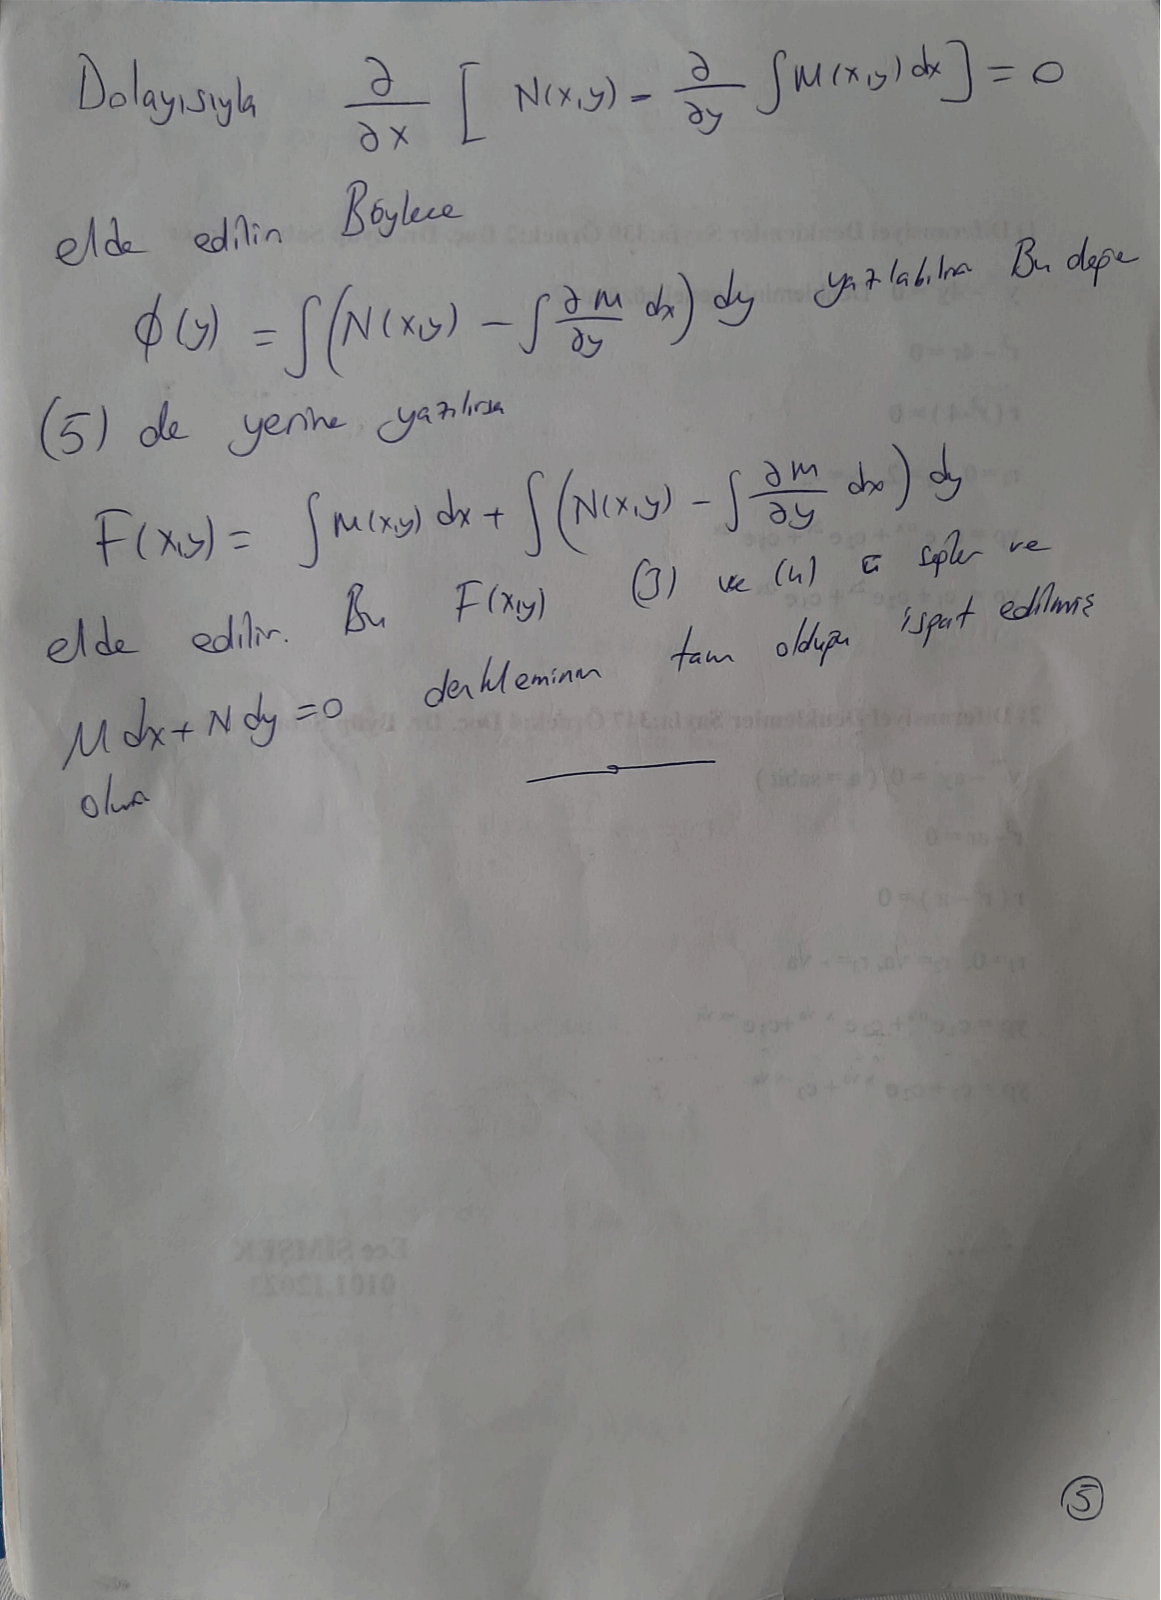 Dolayısıyla ∂/∂x [ N(x,y) - ∂/∂y ∫ M(x,y) dx ] = 0
elde edilir Böylece
φ(y) = ∫ ( N(x,y) - ∫ ∂M/∂y dx ) dy yazılabilir Bu değer
(5) de yerine yazılırsa
F(x,y) = ∫ M(x,y) dx + ∫ ( N(x,y) - ∫ ∂M/∂y dx ) dy
elde edilir. Bu F(x,y) (3) ve (4) ü sağlar ve
M dx + N dy = 0 denkleminin tam olduğu ispat edilmiş
olur
5